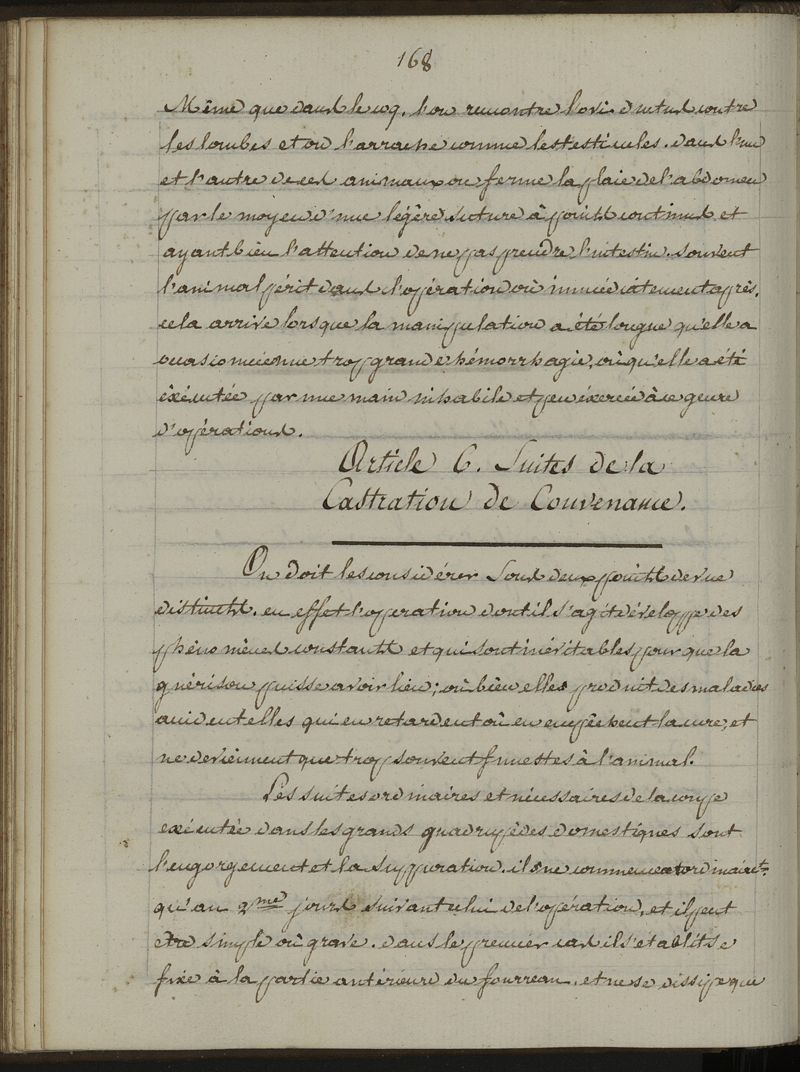 168
Même que dans le coq. l'on rencontre l'ovi-ductus contre
les lombes et on l'arrache comme les testicules. dans l'un
et l'autre de ces animaux on ferme la plaie de l'abdomen
par le moyen d'une légère suture à points continus et
ayant bien l'attention de ne pas prendre l'intestin. souvent
l'animal périt dans l'opération où immédiatement après.
cela arrive lorsque la manipulation a été longue qu'elle a
occasionnée une trop grande hémorrhagie, où qu'elle a été
éxécutée par une main inhabile et peu éxercée à ce genre
d'opérations.
Article 6. Suites de la
Castration de Convenance.
On doit les considérer sous deux points de vue
distincts. en effet l'operation dont il s'agit développe des
phénomènes constants et qui sont inévitables pour que la
guérison puisse avoir lieu; où bien elles produit des maladies
accidentelles qui en retardent où en empêchent la cure, et
ne deviennent que trop souvent funestes à l'animal.
Les suites ordinaires et nécessaires de la coupe
exécutée dans les grands quadrupèdes domestiques sont
l'engorgement et la suppuration. il ne commence ordinairet.
qu'au 2me jours suivant celui de l'opération, et il peut
etre simple où grave. dans le premier cas il s'établit se
fixe à la partie antérieure du fourreau. et ne se dissipe que